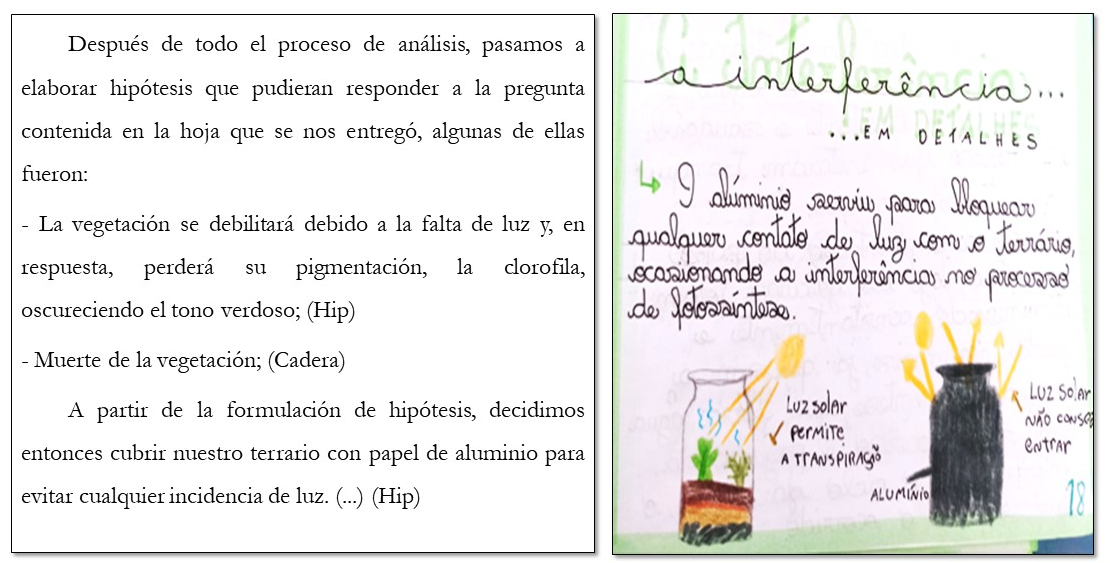 Después de todo el proceso de análisis, pasamos a
elaborar hipótesis que pudieran responder a la pregunta
contenida en la hoja que se nos entregó, algunas de ellas
fueron:
- La vegetación se debilitará debido a la falta de luz y, en
respuesta, perderá su pigmentación, la clorofila,
oscureciendo el tono verdoso; (Hip)
- Muerte de la vegetación; (Cadera)
A partir de la formulación de hipótesis, decidimos
entonces cubrir nuestro terrario con papel de aluminio para
evitar cualquier incidencia de luz. (...) (Hip)
a interferência...
...EM DETALHES
O alúminio serviu para bloquear
qualquer contato de luz com o terrário,
ocasionando a interferência no processo
de fotossíntese.
LUZ SOLAR
PERMITE
A TRANSPIRAÇÃO
LUZ SOLAR
NÃO CONSEG
ENTRAR
ALUMÍNIO
18